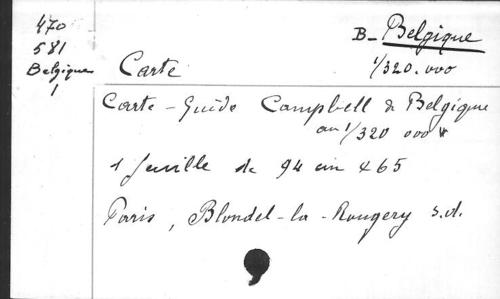 470
581
Belgique
1
B - Belgique
1/320.000
Carte
Carte - Guide Campbell de Belgique
au 1/320 000e
1 feuille de 94 cm 465
Paris, Blondel-la-Rougery s.d.